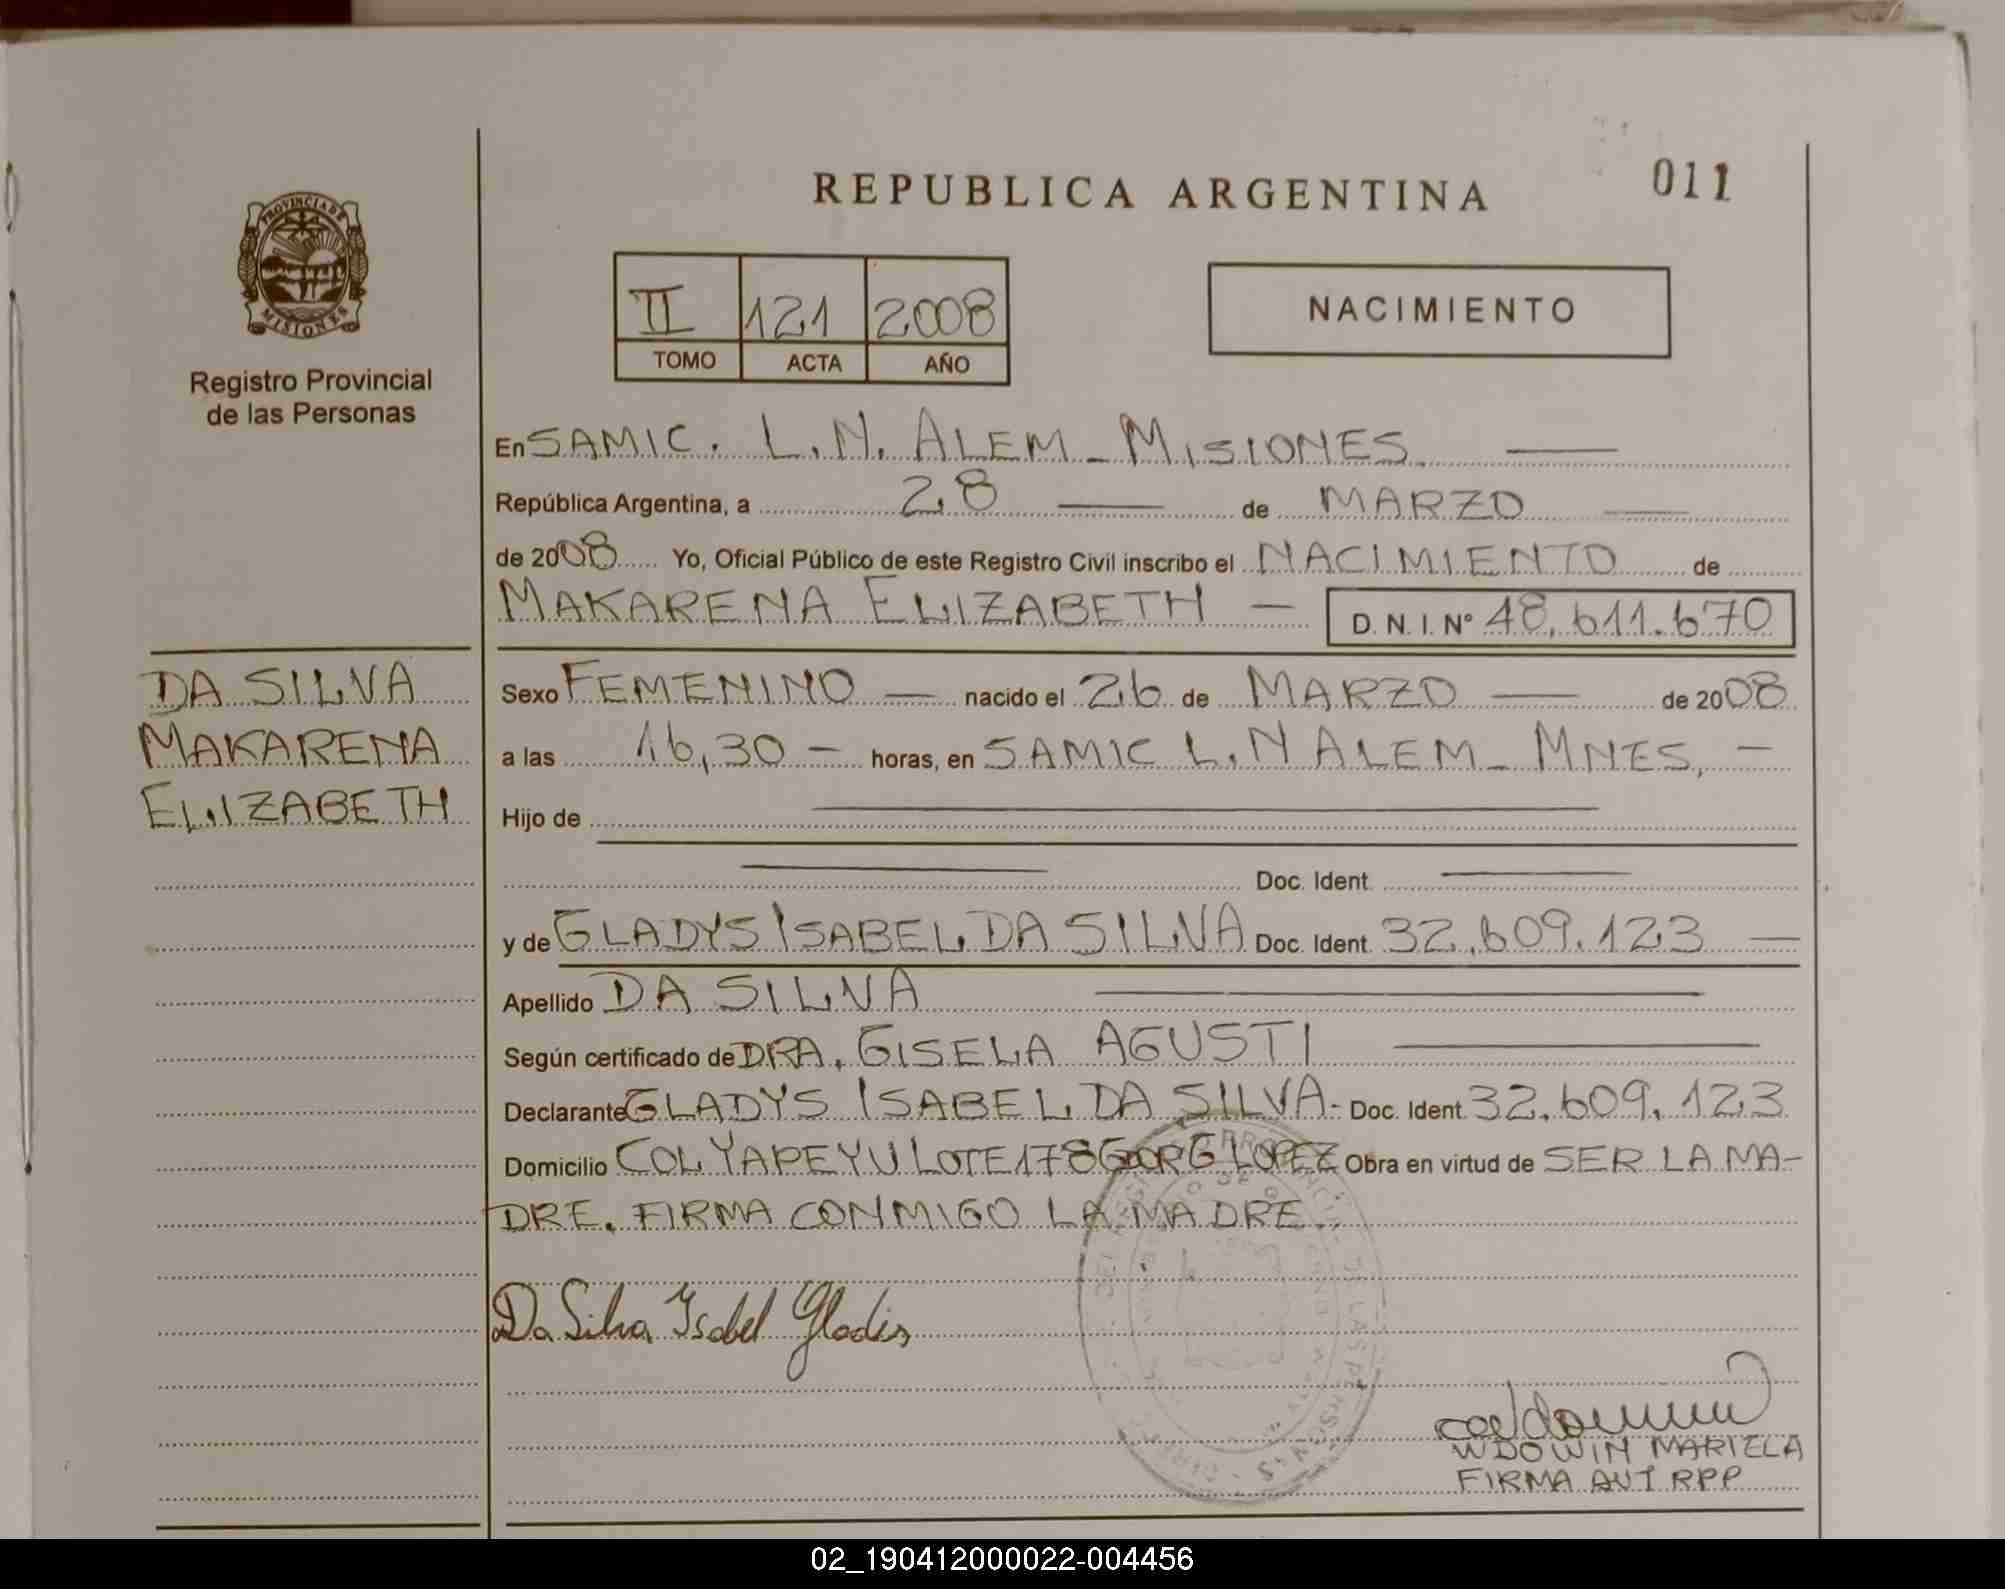 REPUBLICA ARGENTINA
011
PROVINCIA DE
MISIONES
Registro Provincial
de las Personas
II 121 2008
TOMO ACTA AÑO
NACIMIENTO
En SAMIC. L.N. ALEM_MISIONES
República Argentina, a 28 de MARZO
de 2008 Yo, Oficial Público de este Registro Civil inscribo el NACIMIENTO de
MAKARENA ELIZABETH — D. N. I. N° 48.611.670
DA SILVA
MAKARENA
ELIZABETH
Sexo FEMENINO — nacido el 26 de MARZO — de 2008
a las 16,30 — horas, en SAMIC L.N ALEM_MNES, —
Hijo de
Doc. Ident.
y de GLADYS ISABEL DA SILVA Doc. Ident. 32.609.123 —
Apellido DA SILVA
Según certificado de DRA. GISELA AGUSTI
Declarante GLADYS ISABEL DA SILVA- Doc. Ident. 32.609.123
Domicilio COL YAPEYU LOTE 178 LOPEZ Obra en virtud de SER LA MA-
DRE. FIRMA CONMIGO LA MADRE.
Da Silva Isabel Gladis
WDOWIN MARIELA
FIRMA AUT RPP
02_190412000022-004456